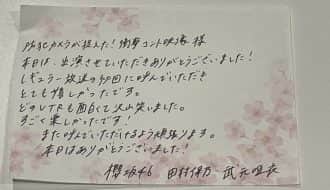 防犯カメラが捉えた!衝撃コント映像 様
本日は、出演させていただきありがとうございました!
レギュラー放送の初回に呼んでいただき
とても嬉しかったです。
どのVTRも面白くて沢山笑いました。
すごく楽しかったです!
また呼んでいただけるよう頑張ります。
本日はありがとうございました!
櫻坂46 田村保乃 武元唯衣